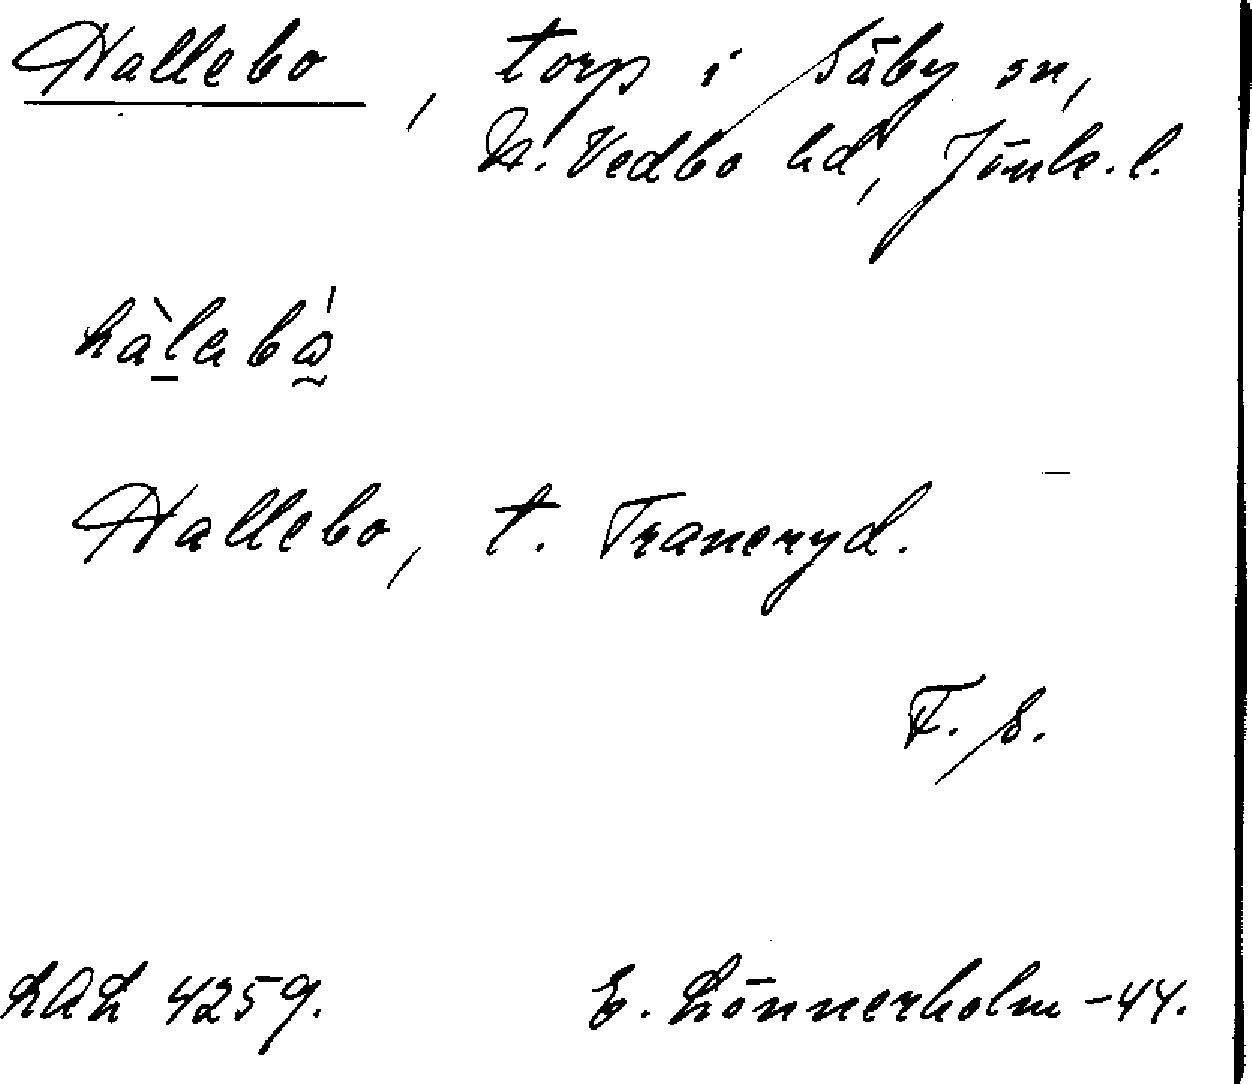 Hallebo, torp i Säby sn,
N. Vedbo hd, Jönk. l.
hàlebó
Hallebo, t. Traneryd.
F. S.
LAL 4259. E. Lönnerholm -44.